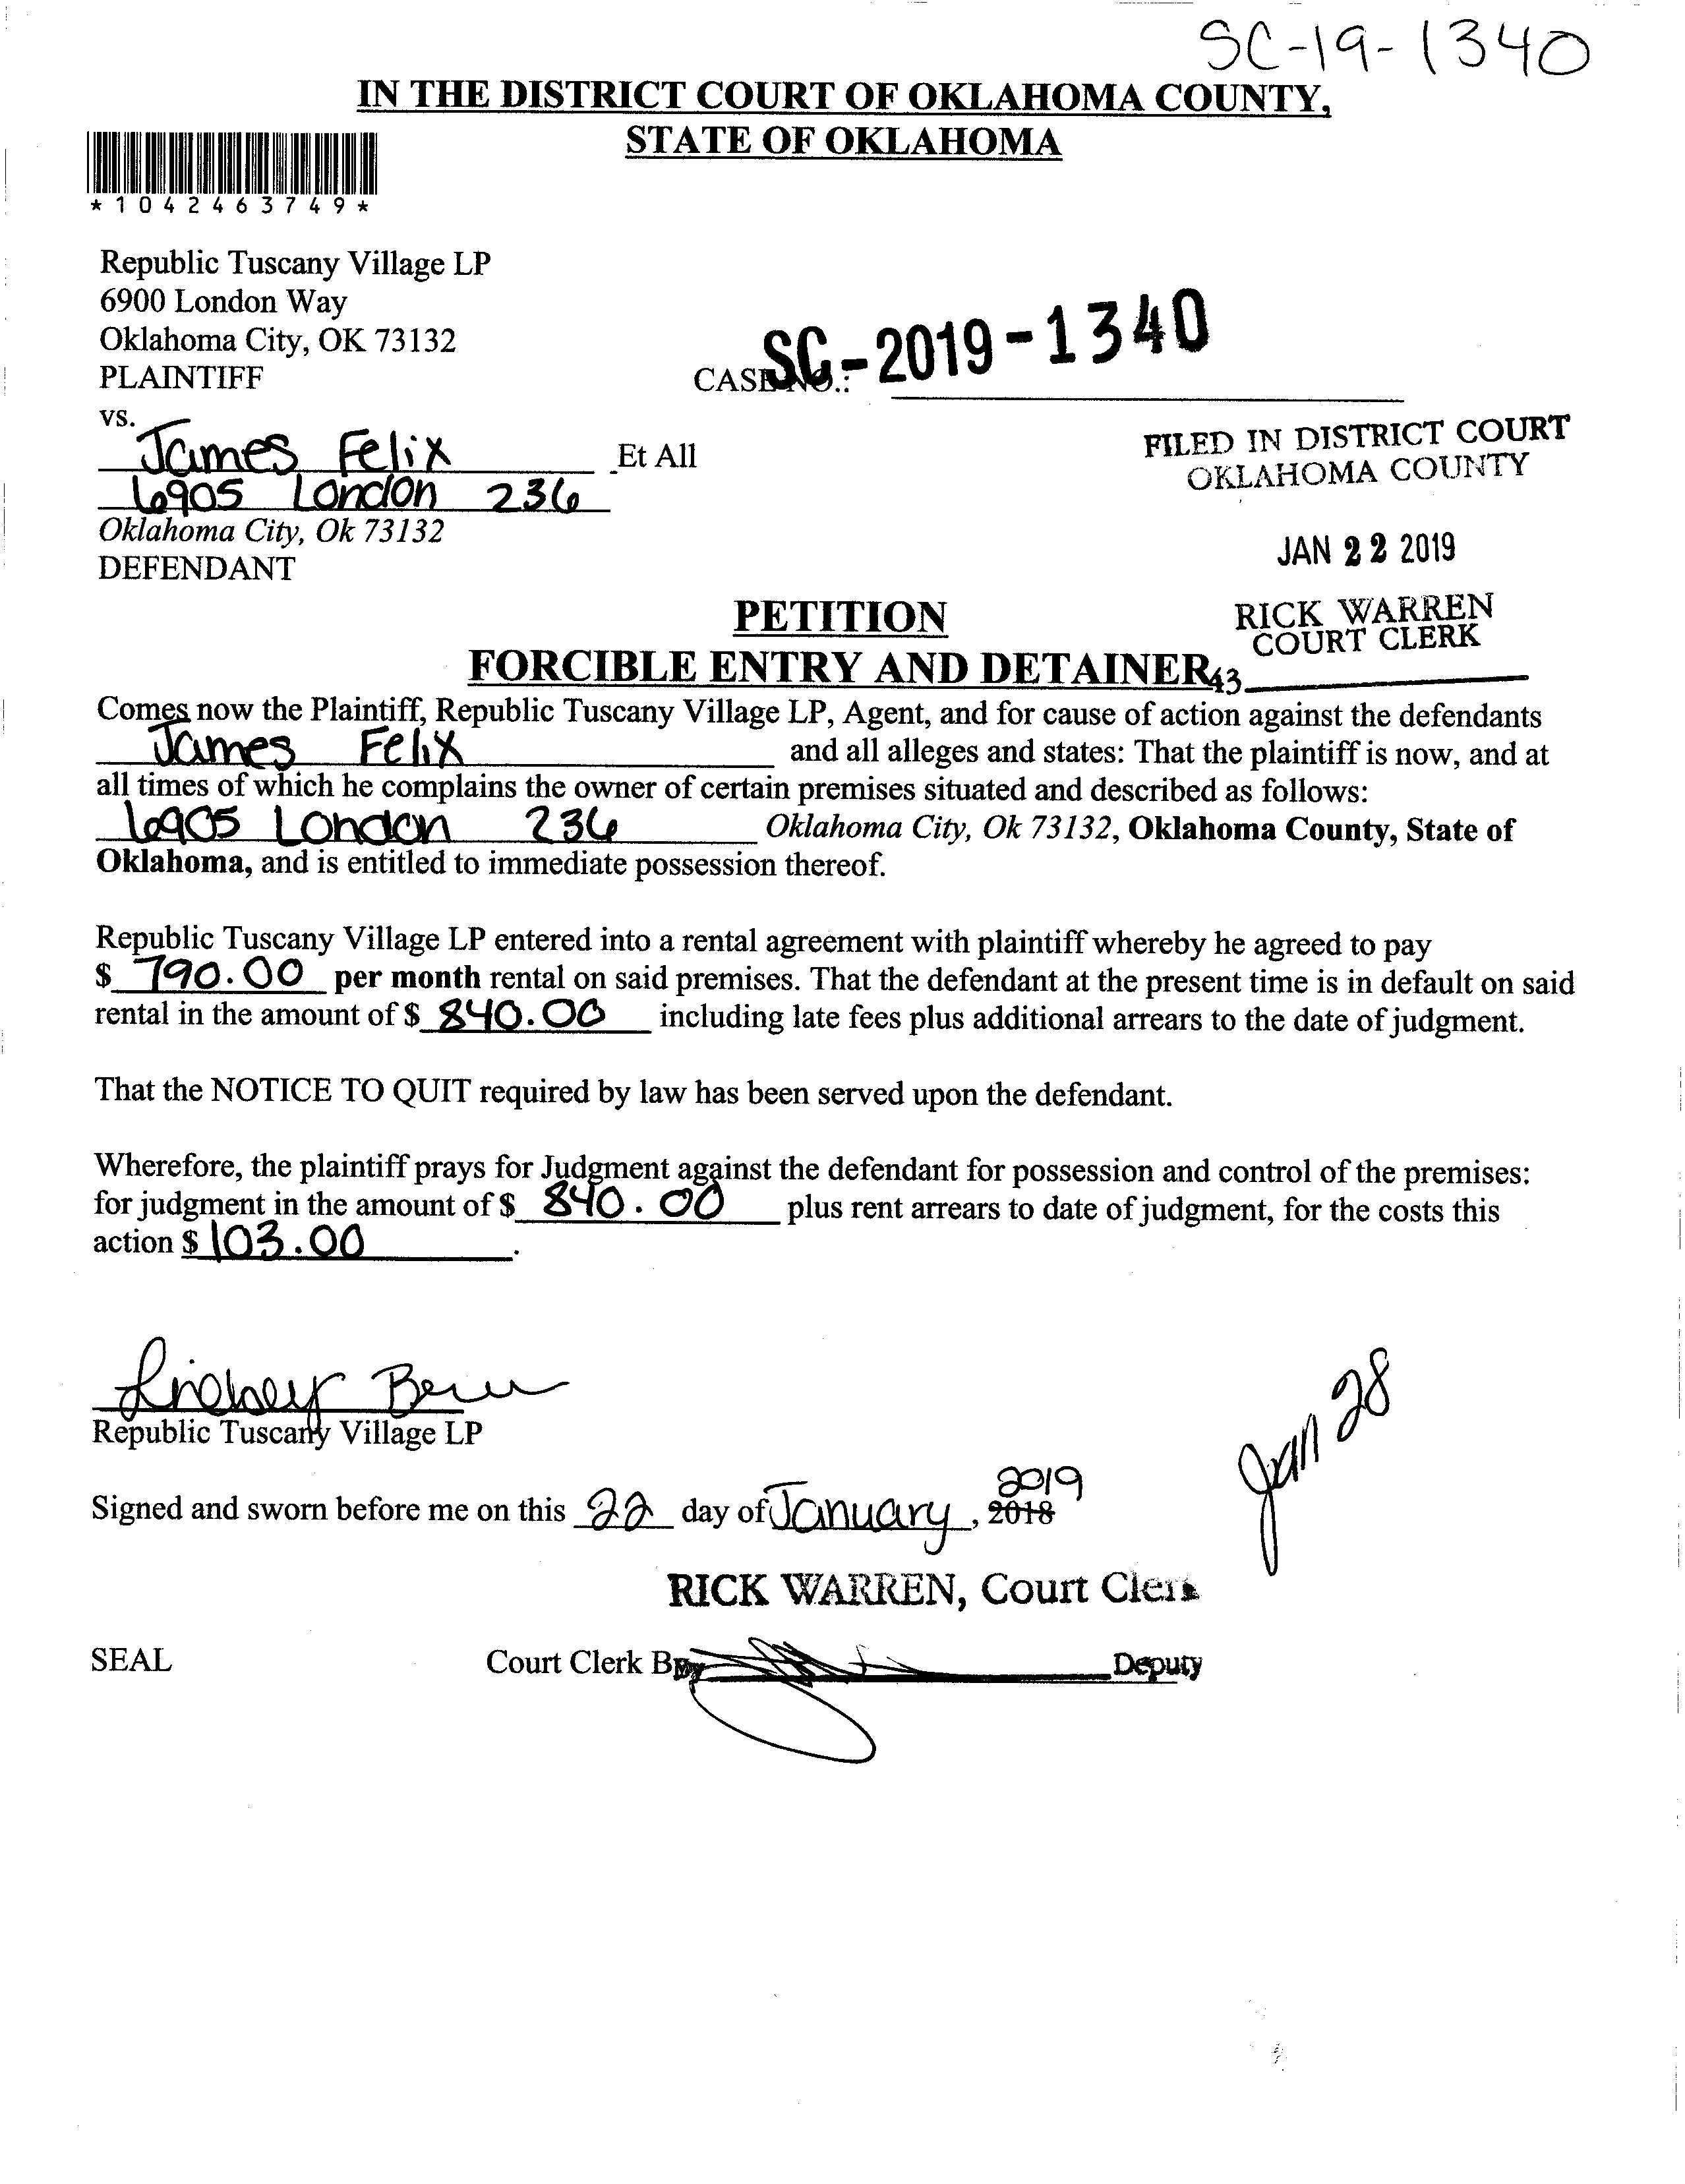 SC-19-1340
IN THE DISTRICT COURT OF OKLAHOMA COUNTY,
STATE OF OKLAHOMA
*1042463749*
Republic Tuscany Village LP
6900 London Way
Oklahoma City, OK 73132
PLAINTIFF
CASE NO.: SC-2019-1340
vs.
James Felix Et All
6905 London 236
Oklahoma City, Ok 73132
DEFENDANT
FILED IN DISTRICT COURT
OKLAHOMA COUNTY
JAN 22 2019
RICK WARREN
COURT CLERK
43
PETITION
FORCIBLE ENTRY AND DETAINER
Comes now the Plaintiff, Republic Tuscany Village LP, Agent, and for cause of action against the defendants
James Felix and all alleges and states: That the plaintiff is now, and at
all times of which he complains the owner of certain premises situated and described as follows:
6905 London 236 Oklahoma City, Ok 73132, Oklahoma County, State of
Oklahoma, and is entitled to immediate possession thereof.
Republic Tuscany Village LP entered into a rental agreement with plaintiff whereby he agreed to pay
$ 790.00 per month rental on said premises. That the defendant at the present time is in default on said
rental in the amount of $ 840.00 including late fees plus additional arrears to the date of judgment.
That the NOTICE TO QUIT required by law has been served upon the defendant.
Wherefore, the plaintiff prays for Judgment against the defendant for possession and control of the premises:
for judgment in the amount of $ 840.00 plus rent arrears to date of judgment, for the costs this
action $ 103.00.
Lindsey
Republic Tuscany Village LP
Jan 28
2019
Signed and sworn before me on this 22 day of January, 2018
RICK WARREN, Court Clerk
SEAL Court Clerk By Deputy